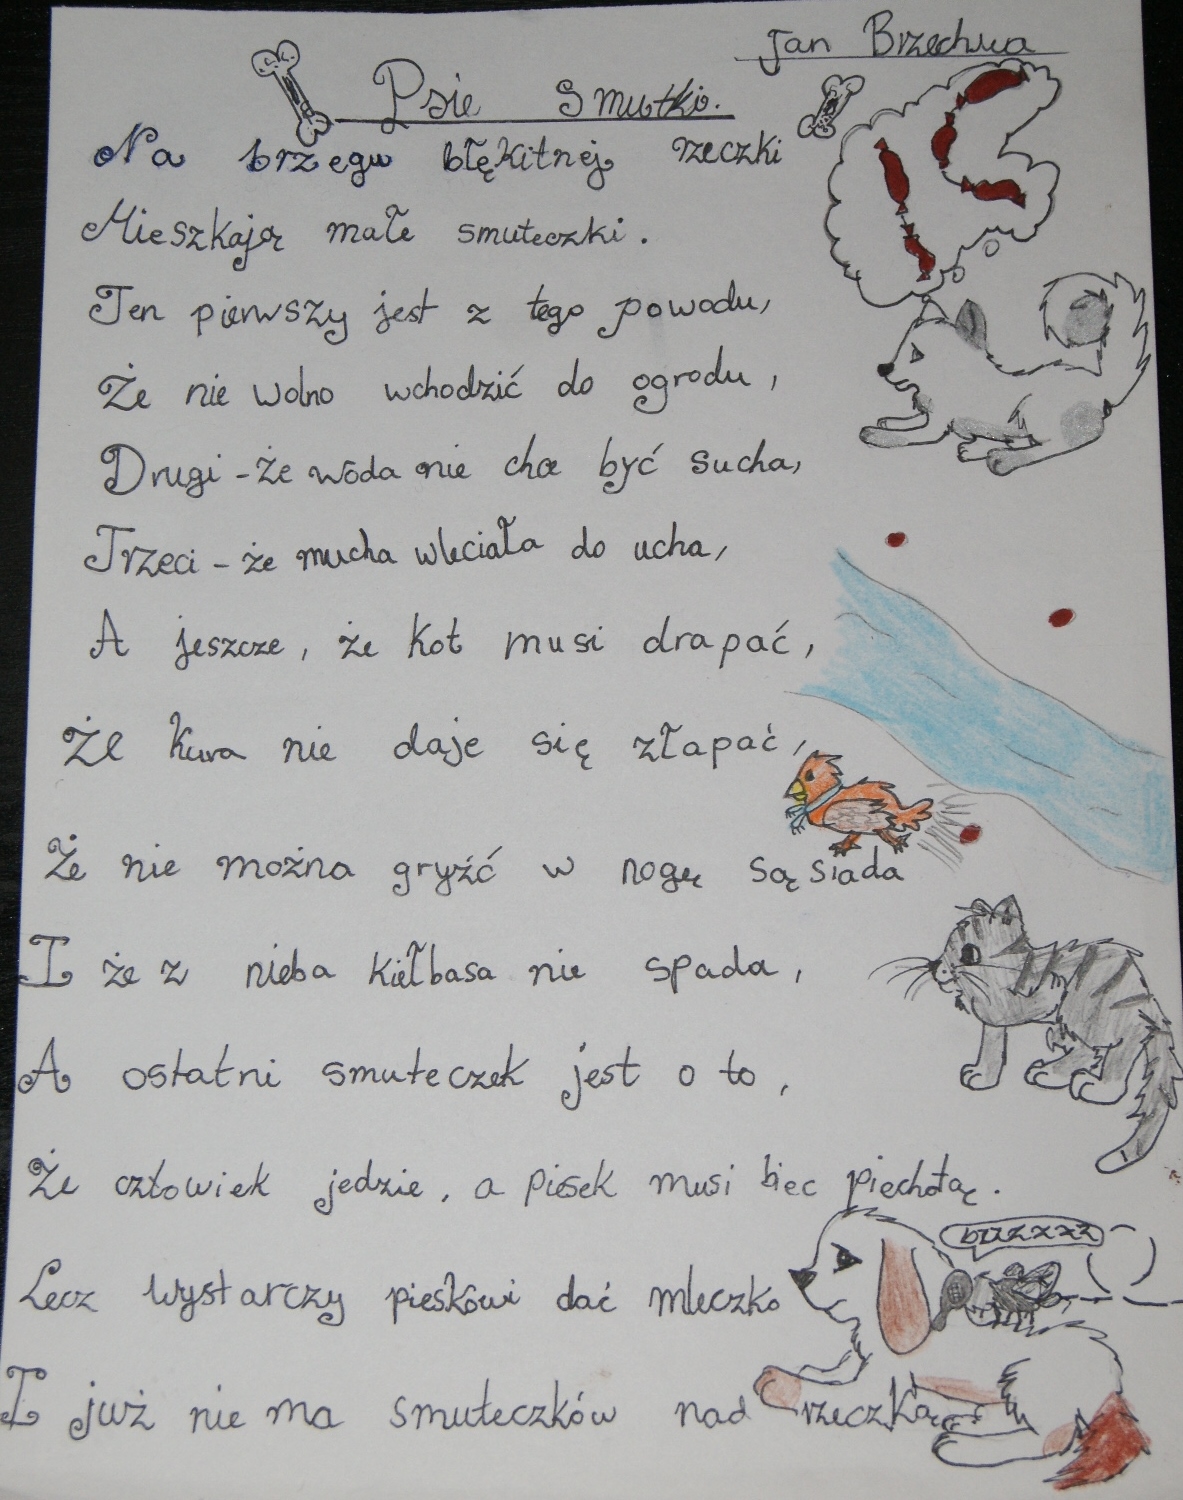 Jan Brzechwa
Psie Smutki.
Na brzegu błękitnej rzeczki
Mieszkają małe smuteczki.
Ten pierwszy jest z tego powodu,
Że nie wolno wchodzić do ogrodu,
Drugi - że woda nie chce być sucha,
Trzeci - że mucha wleciała do ucha,
A jeszcze, że kot musi drapać,
Że kura nie daje się złapać,
Że nie można gryźć w nogę sąsiada
I że z nieba kiełbasa nie spada,
A ostatni smuteczek jest o to,
Że człowiek jedzie, a piesek musi biec piechotą.
bzzzzzz
Lecz wystarczy pieskowi dać mleczko
I już nie ma smuteczków nad rzeczką